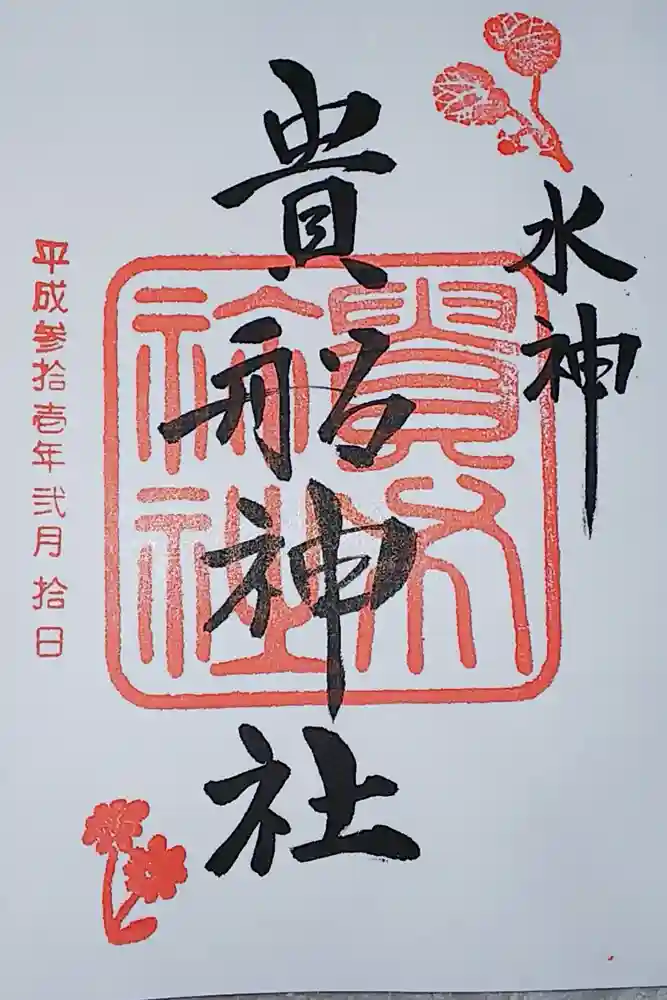 水神
貴船神社
平成参拾壱年弐月拾日